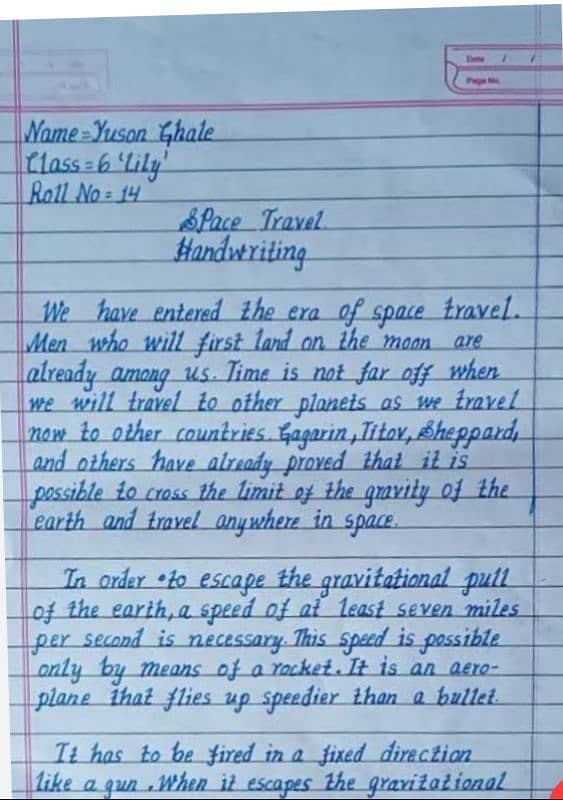 Date / /
Page No.
Name=Yuson Ghale
Class=6 'Lily'
Roll No = 14
Space Travel
Handwriting
We have entered the era of space travel.
Men who will first land on the moon are
already among us. Time is not far off when
we will travel to other planets as we travel
now to other countries. Gagarin, Titov, Sheppard,
and others have already proved that it is
possible to cross the limit of the gravity of the
earth and travel anywhere in space.
In order to escape the gravitational pull
of the earth, a speed of at least seven miles
per second is necessary. This speed is possible
only by means of a rocket. It is an aero-
plane that flies up speedier than a bullet.
It has to be fired in a fixed direction
like a gun. When it escapes the gravitational